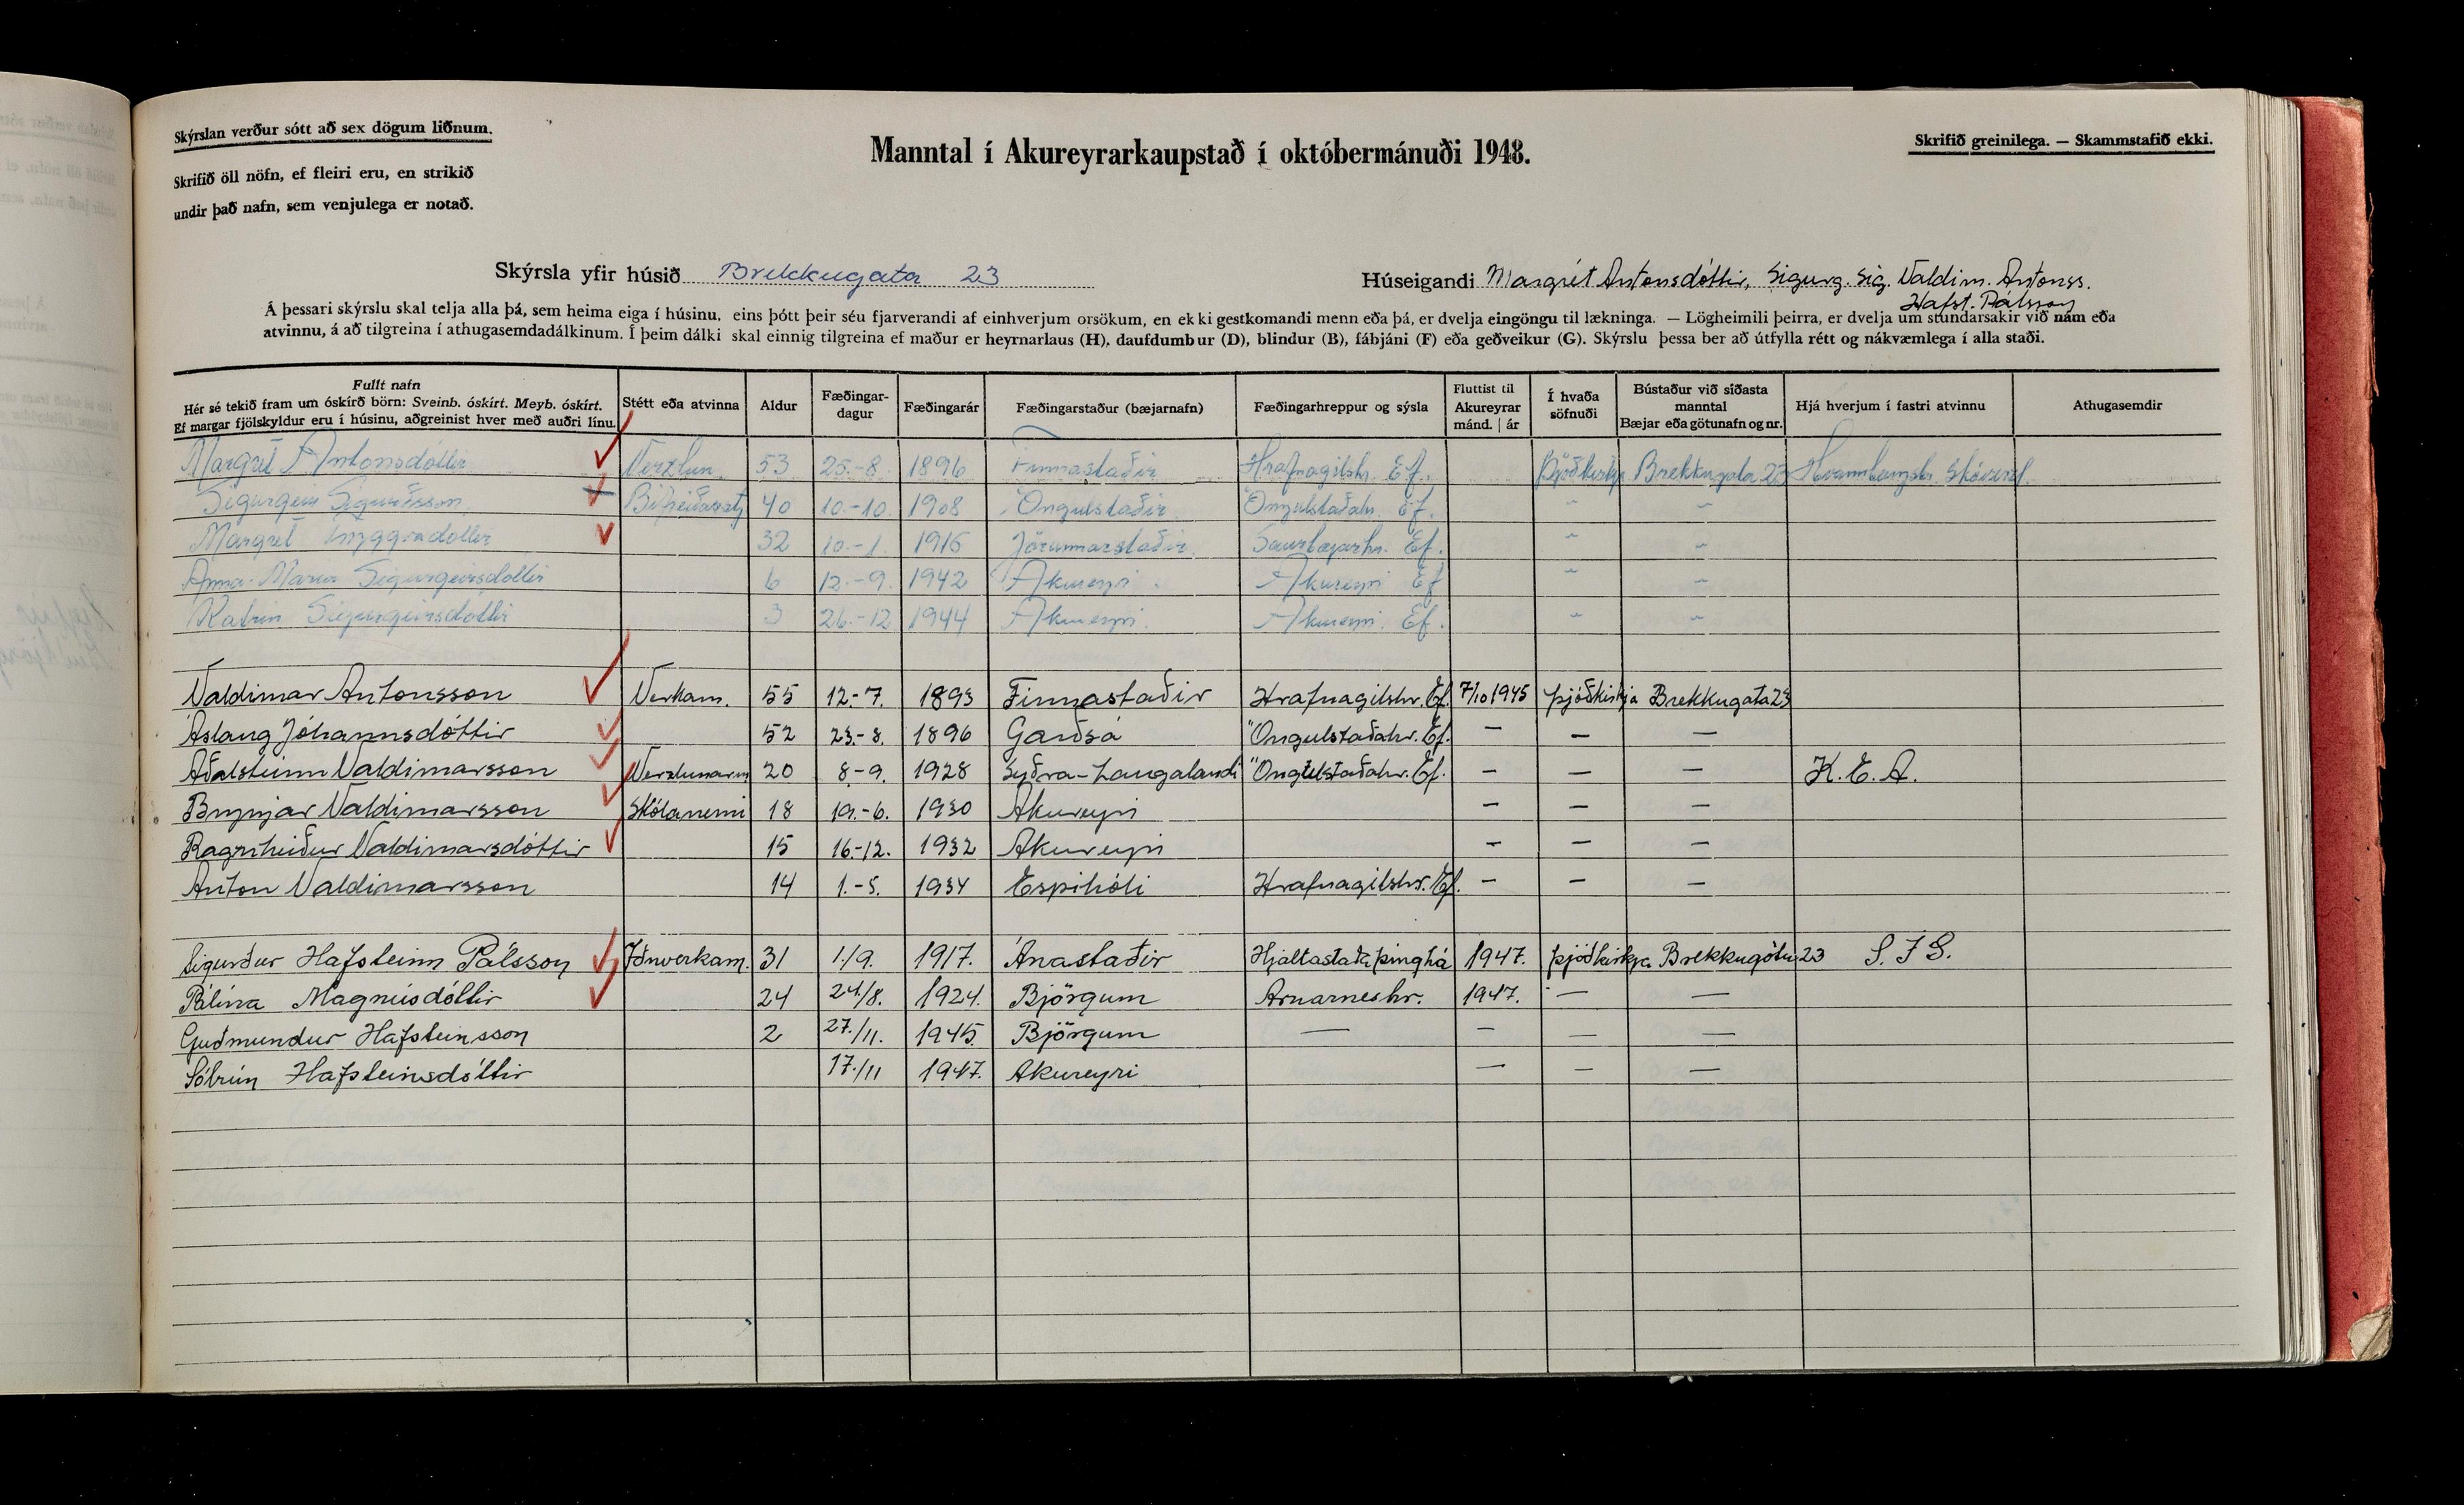 Skýrslan verður sótt að sex dögum liðnum.
Skrifið öll nöfn, ef fleiri eru, en strikið
undir það nafn, sem venjulega er notað.
Manntal í Akureyrarkaupstað í októbermánuði 1948.
Skrifið greinilega. — Skammstafið ekki.
Skýrsla yfir húsið Brekkugata 23
Húseigandi Margrét Antonsdóttir, Sigurg. Sig. Valdim. Antonss.
Hafst. Pálsson
Á þessari skýrslu skal telja alla þá, sem heima eiga í húsinu, eins þótt þeir séu fjarverandi af einhverjum orsökum, en ekki gestkomandi menn eða þá, er dvelja eingöngu til lækninga. — Lögheimili þeirra, er dvelja um stundarsakir við nám eða
atvinnu, á að tilgreina í athugasemdadálkinum. Í þeim dálki skal einnig tilgreina ef maður er heyrnarlaus (H), daufdumbur (D), blindur (B), fábjáni (F) eða geðveikur (G). Skýrslu þessa ber að útfylla rétt og nákvæmlega í alla staði.
Fullt nafn
Hér sé tekið fram um óskírð börn: Sveinb. óskírt. Meyb. óskírt.
Ef margar fjölskyldur eru í húsinu, aðgreinist hver með auðri línu.
Stétt eða atvinna
Aldur
Fæðingar-
dagur
Fæðingarár
Fæðingarstaður (bæjarnafn)
Fæðingarhreppur og sýsla
Fluttist til
Akureyrar
mánd. | ár
Í hvaða
söfnuði
Bústaður við síðasta
manntal
Bæjar eða götunafn og nr.
Hjá hverjum í fastri atvinnu
Athugasemdir
Margrét Antonsdóttir Verzlun 53 25.-8. 1896 Finnastaðir Hrafnagilshr. Ef. Þjóðkirkj Brekkugata 23
Sigurgeir Sigurðsson Bifreiðarstj 40 10.-10. 1908 Öngulstaðir Öngulstaðahr. Ef. - -
Margrét Tryggvadóttir 32 10.-1. 1916 Jórunnarstaðir Saurbæjarhr. Ef. - -
Anna María Sigurgeirsdóttir 6 12.-9. 1942 Akureyri Akureyri Ef - -
Katrín Sigurgeirsdóttir 3 26.-12 1944 Akureyri. Akureyri. Ef. - -
Valdimar Antonsson Verkam. 55 12.-7. 1893 Finnastaðir Hrafnagilshr. Ef. 7/10 1945 þjóðkirkja Brekkugata 23
Áslaug Jóhannsdóttir 52 23.-8. 1896 Garðsá Öngulstaðahr. Ef. — — —
Aðalsteinn Valdimarsson Verzlunarm 20 8-9. 1928 Syðra-Laugalandi Öngulstaðahr. Ef. — — — K.E.A.
Brynjar Valdimarsson Skólanemi 18 19.-6. 1930 Akureyri — — —
Ragnheiður Valdimarsdóttir 15 16.-12. 1932 Akureyri — — —
Anton Valdimarsson 14 1.-5. 1934 Espihóli Hrafnagilshr. Ef. — — —
Sigurður Hafsteinn Pálsson Iðnverkam. 31 1./9. 1917. Ánastaðir Hjaltastaðaþinghá 1947. þjóðkirkja Brekkugötu 23 S.Í.S.
Pálína Magnúsdóttir 24 24/8. 1924. Björgum Arnarneshr. 1947. — —
Guðmundur Hafsteinsson 2 27./11. 1945. Björgum — — — —
Sólrún Hafsteinsdóttir 17./11 1947. Akureyri — — —